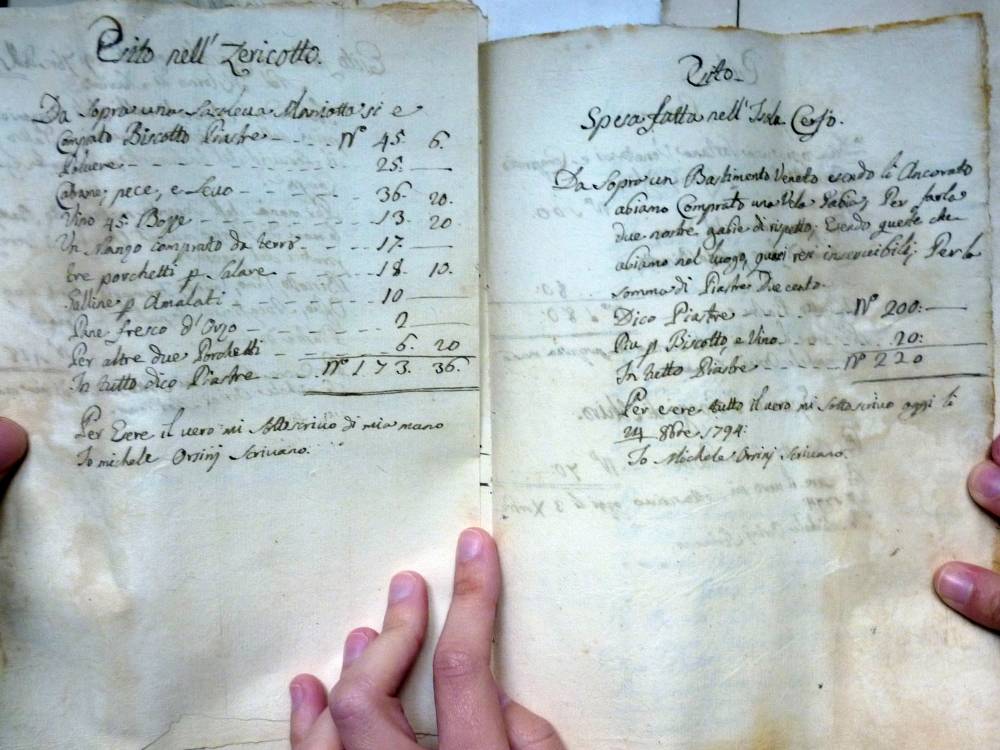 Esito nell' Zericotto.
Da Sopra una Sacoleva Maniotta si e
Comprato Biscotto Piastre N° 45. 6.
Polvere 25.
Cabane, pece, e Sevo 36. 20.
Vino 45 Boze 13. 20
Un Mango comprato da terra 17.
tre porchetti p. Salare 18. 10.
Galline p. Amalati 10
Pane fresco d'Orzo 2
Per altre due Porchetti 6. 20
In tutto dico Piastre N° 173. 36.
Per Eere il vero mi Sottoscrivo di mia mano
Io michele Orsinj Scrivano.
Esito
Spesa fatta nell' Isola Cerfo.
Da Sopra un Bastimento Veneto esendo li Ancorato
abiamo Comprato una Vela Gabia, Per farla
due nostre gabie di rispetto; Esendo quelle che
abiamo nel luogo, quasi resi inservibili; Per la
somma di Piastre Due cento.
Dico Piastre N° 200:
Piu p. Biscotto, e Vino 20:
In tutto Piastre N° 220
Per eere tutto il vero mi Sottoscrivo oggi li
24 8bre 1794:
Io Michele Orsinj Scrivano.